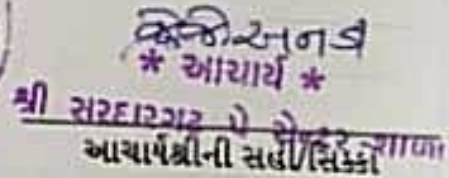 * આચાર્ય *
શ્રી સરદારગઢ પે સેન્ટર શાળા
આચાર્યશ્રીની સહી/સિક્કો